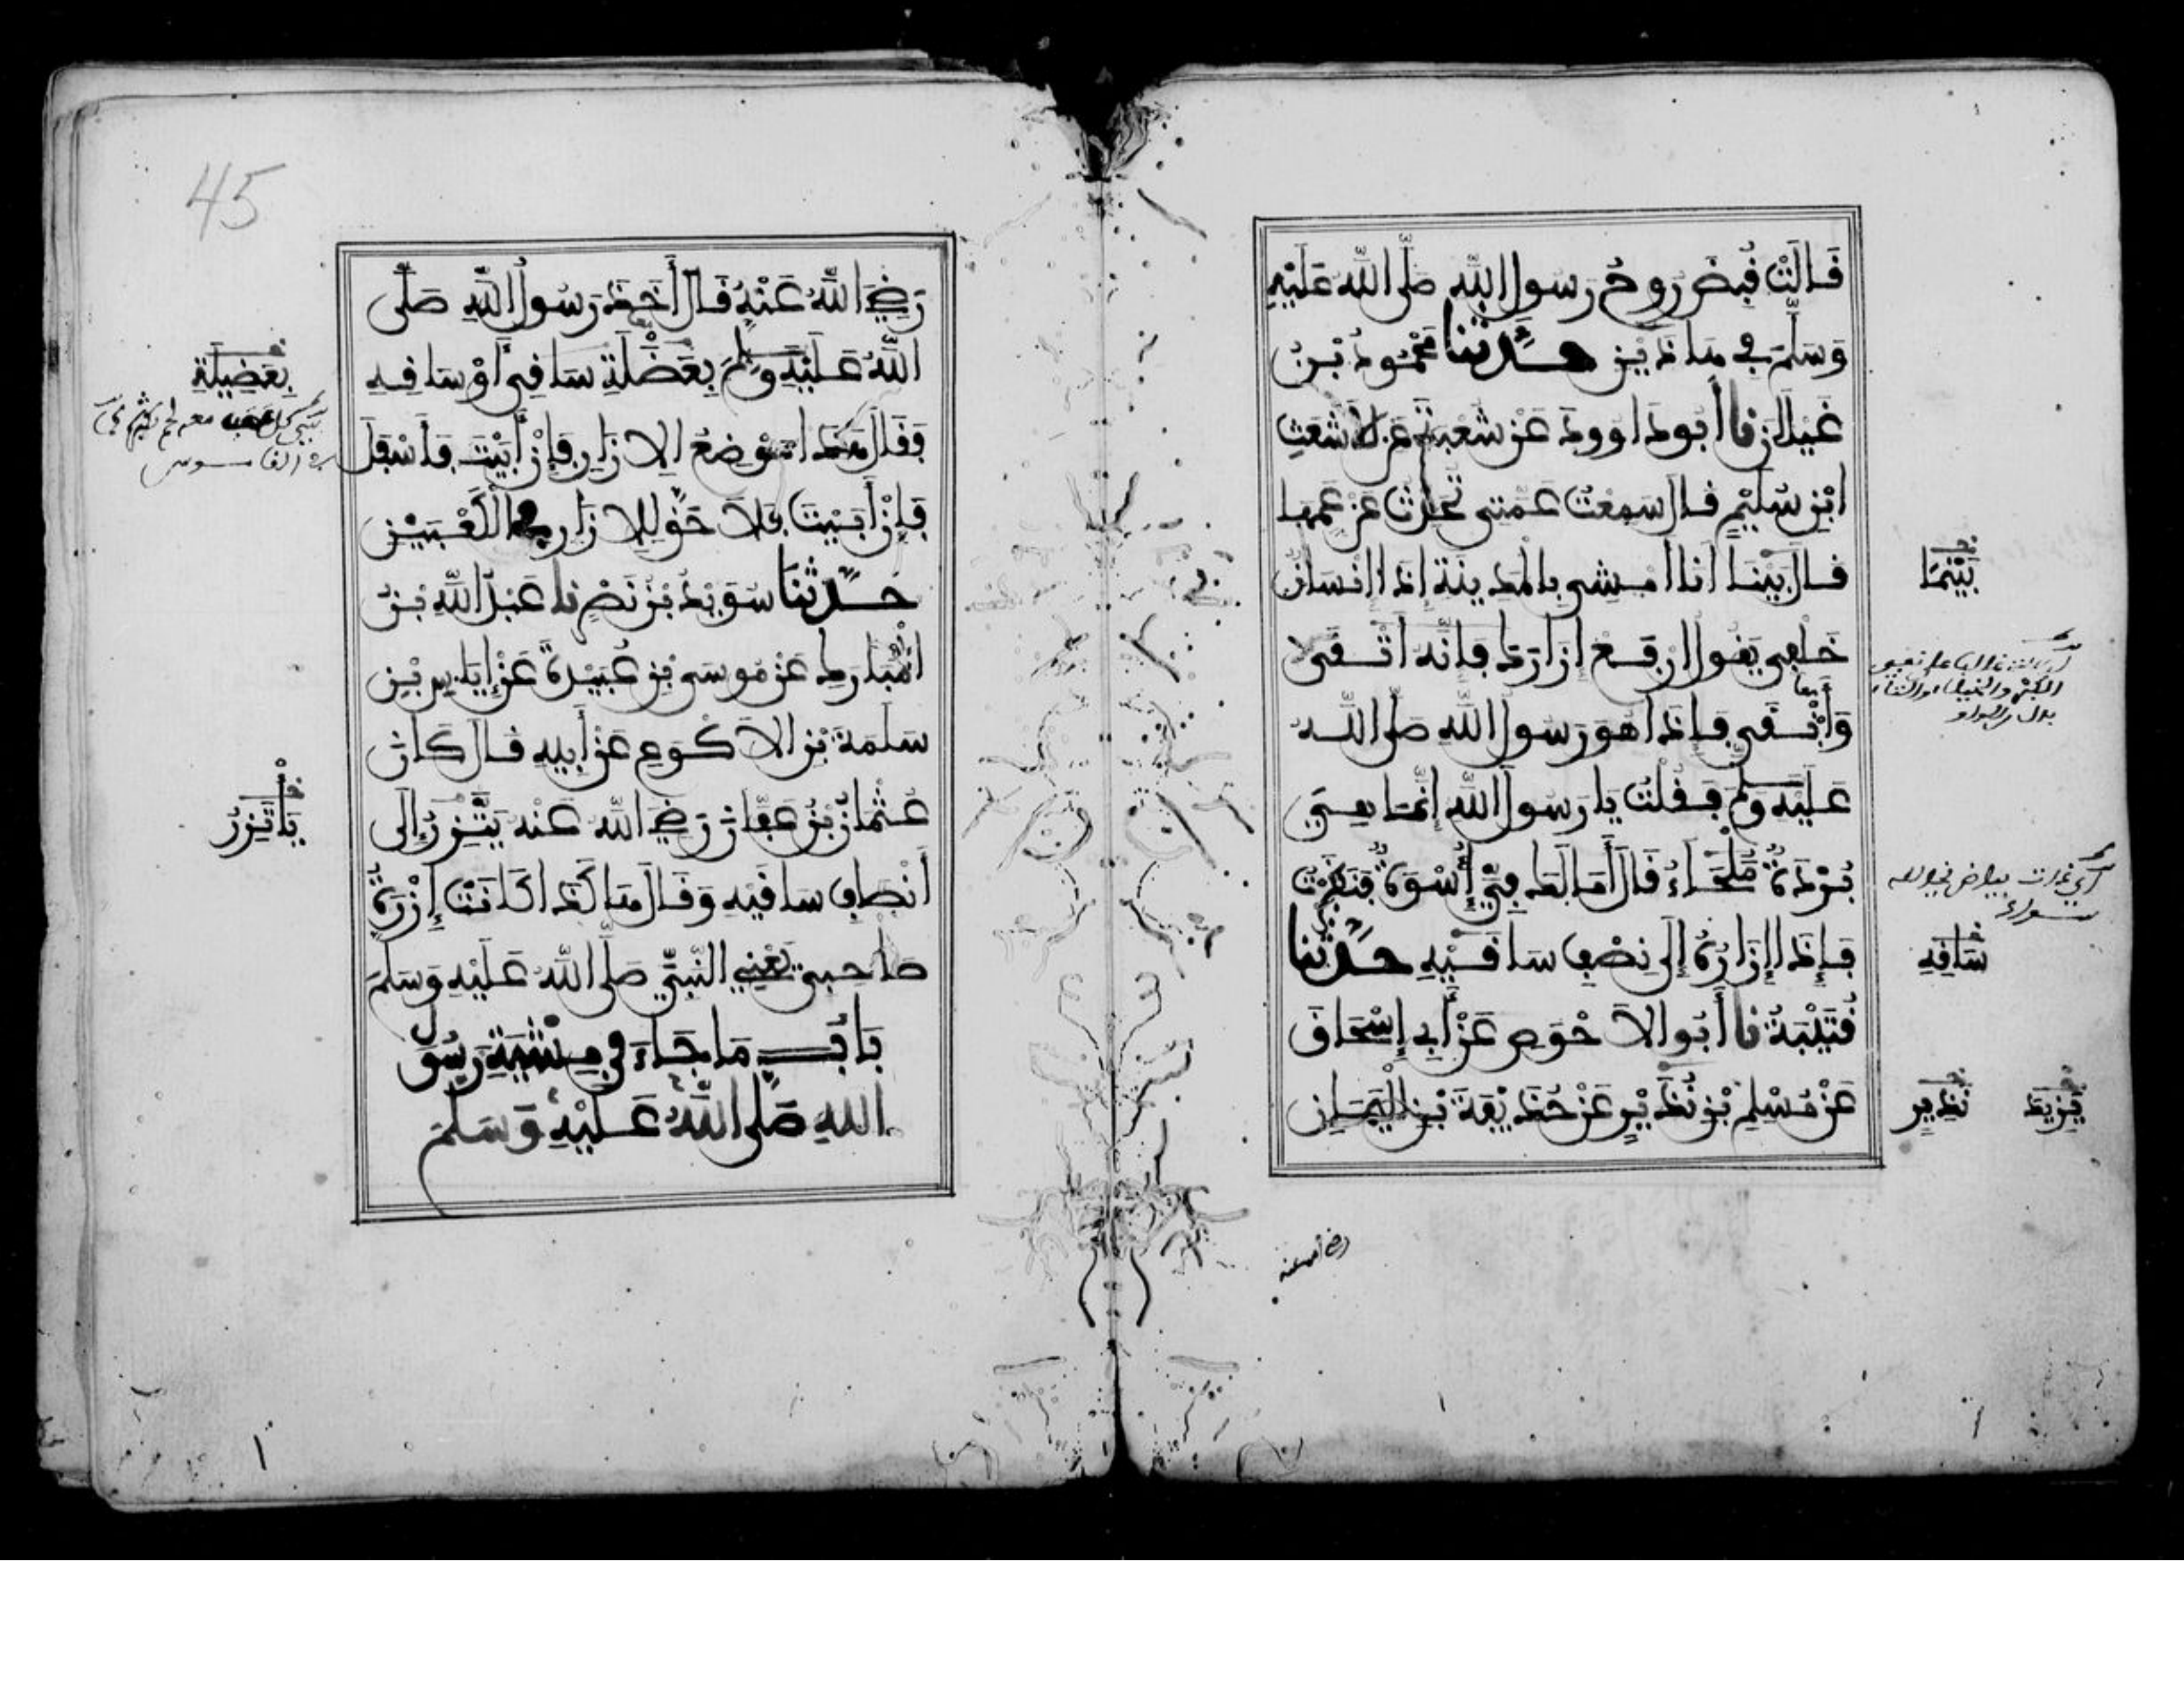 قَالَتْ قُبِضَ رُوحُ رسول الله صَلَّى اللَّهُ عَلَيْهِ
وَسَلَّمَ فِي هَذَيْنِ حَدَّثَنَا مَحْمُودُ بْنُ
غَيْلَانَ نا أَبُو دَاوود عَنْ شُعْبَةَ عَنِ الأَشْعَثِ
ابْنِ سُلَيْمٍ قَالَ سَمِعْتُ عَمَّتِي تُحَدِّثُ عَنْ عَمِّهَا
قَالَ بَيْنَا أَنَا أَمْشِي بِالْمَدِينَةِ إِذَا إِنْسَانٌ
خَلْفِي يَقُولُ ارْفَعْ إِزَارَكَ فَإِنَّهُ أَتْقَى
وَأَبْقَى فَإِذَا هُوَ رَسُولُ اللَّهِ صَلَّى اللَّهُ
عَلَيْهِ وَسَلَّمَ فَقُلْتُ يَا رَسُولَ اللَّهِ إِنَّمَا هِيَ
بُرْدَةٌ مَلْحَاءُ قَالَ أَمَا لَكَ فِيَّ أُسْوَةٌ فَنَظَرْتُ
فَإِذَا إِزَارُهُ إِلَى نِصْفِ سَاقَيْهِ حَدَّثَنَا
قُتَيْبَةُ نا أَبُو الأَحْوَصِ عَنْ أَبِي إِسْحَاقَ
عَنْ مُسْلِمِ بْنِ نُذَيْرٍ عَنْ حُذَيْفَةَ بْنِ الْيَمَانِ
بَيْنَمَا
سَاقِهِ
نَذِيرٍ
يَزِيدَ
رضي الله عنه
45
رَضِيَ اللَّهُ عَنْهُ قَالَ أَخَذَ رَسُولُ اللَّهِ صَلَّى
اللَّهُ عَلَيْهِ وَسَلَّمَ بِعَضَلَةِ سَاقِي أَوْ سَاقِهِ
وَقَالَ هَذَا مَوْضِعُ الإِزَارِ فَإِنْ أَبَيْتَ فَأَسْفَلَ
فَإِنْ أَبَيْتَ فَلاَ حَقَّ لِلإِزَارِ فِي الْكَعْبَيْنِ
حَدَّثَنَا سُوَيْدُ بْنُ نَصْرٍ نا عَبْدُ اللَّهِ بْنُ
الْمُبَارَكِ عَنْ مُوسَى بْنِ عُبَيْدَةَ عَنْ إِيَاسِ بْنِ
سَلَمَةَ بْنِ الأَكْوَعِ عَنْ أَبِيهِ قَالَ كَانَ
عُثْمَانُ بْنُ عَفَّانَ رَضِيَ اللَّهُ عَنْهُ يَتَّزِرُ إِلَى
أَنْصَافِ سَاقَيْهِ وَقَالَ هَكَذَا كَانَتْ إِزْرَةُ
صَاحِبِي يَعْنِي النَّبِيَّ صَلَّى اللَّهُ عَلَيْهِ وَسَلَّمَ
بَابُ مَا جَاءَ فِي مِشْيَةِ رَسُولِ
اللهِ صَلَّى اللَّهُ عَلَيْهِ وَسَلَّمَ
بِعَضِيلَةِ
يَأْتَزِرُ